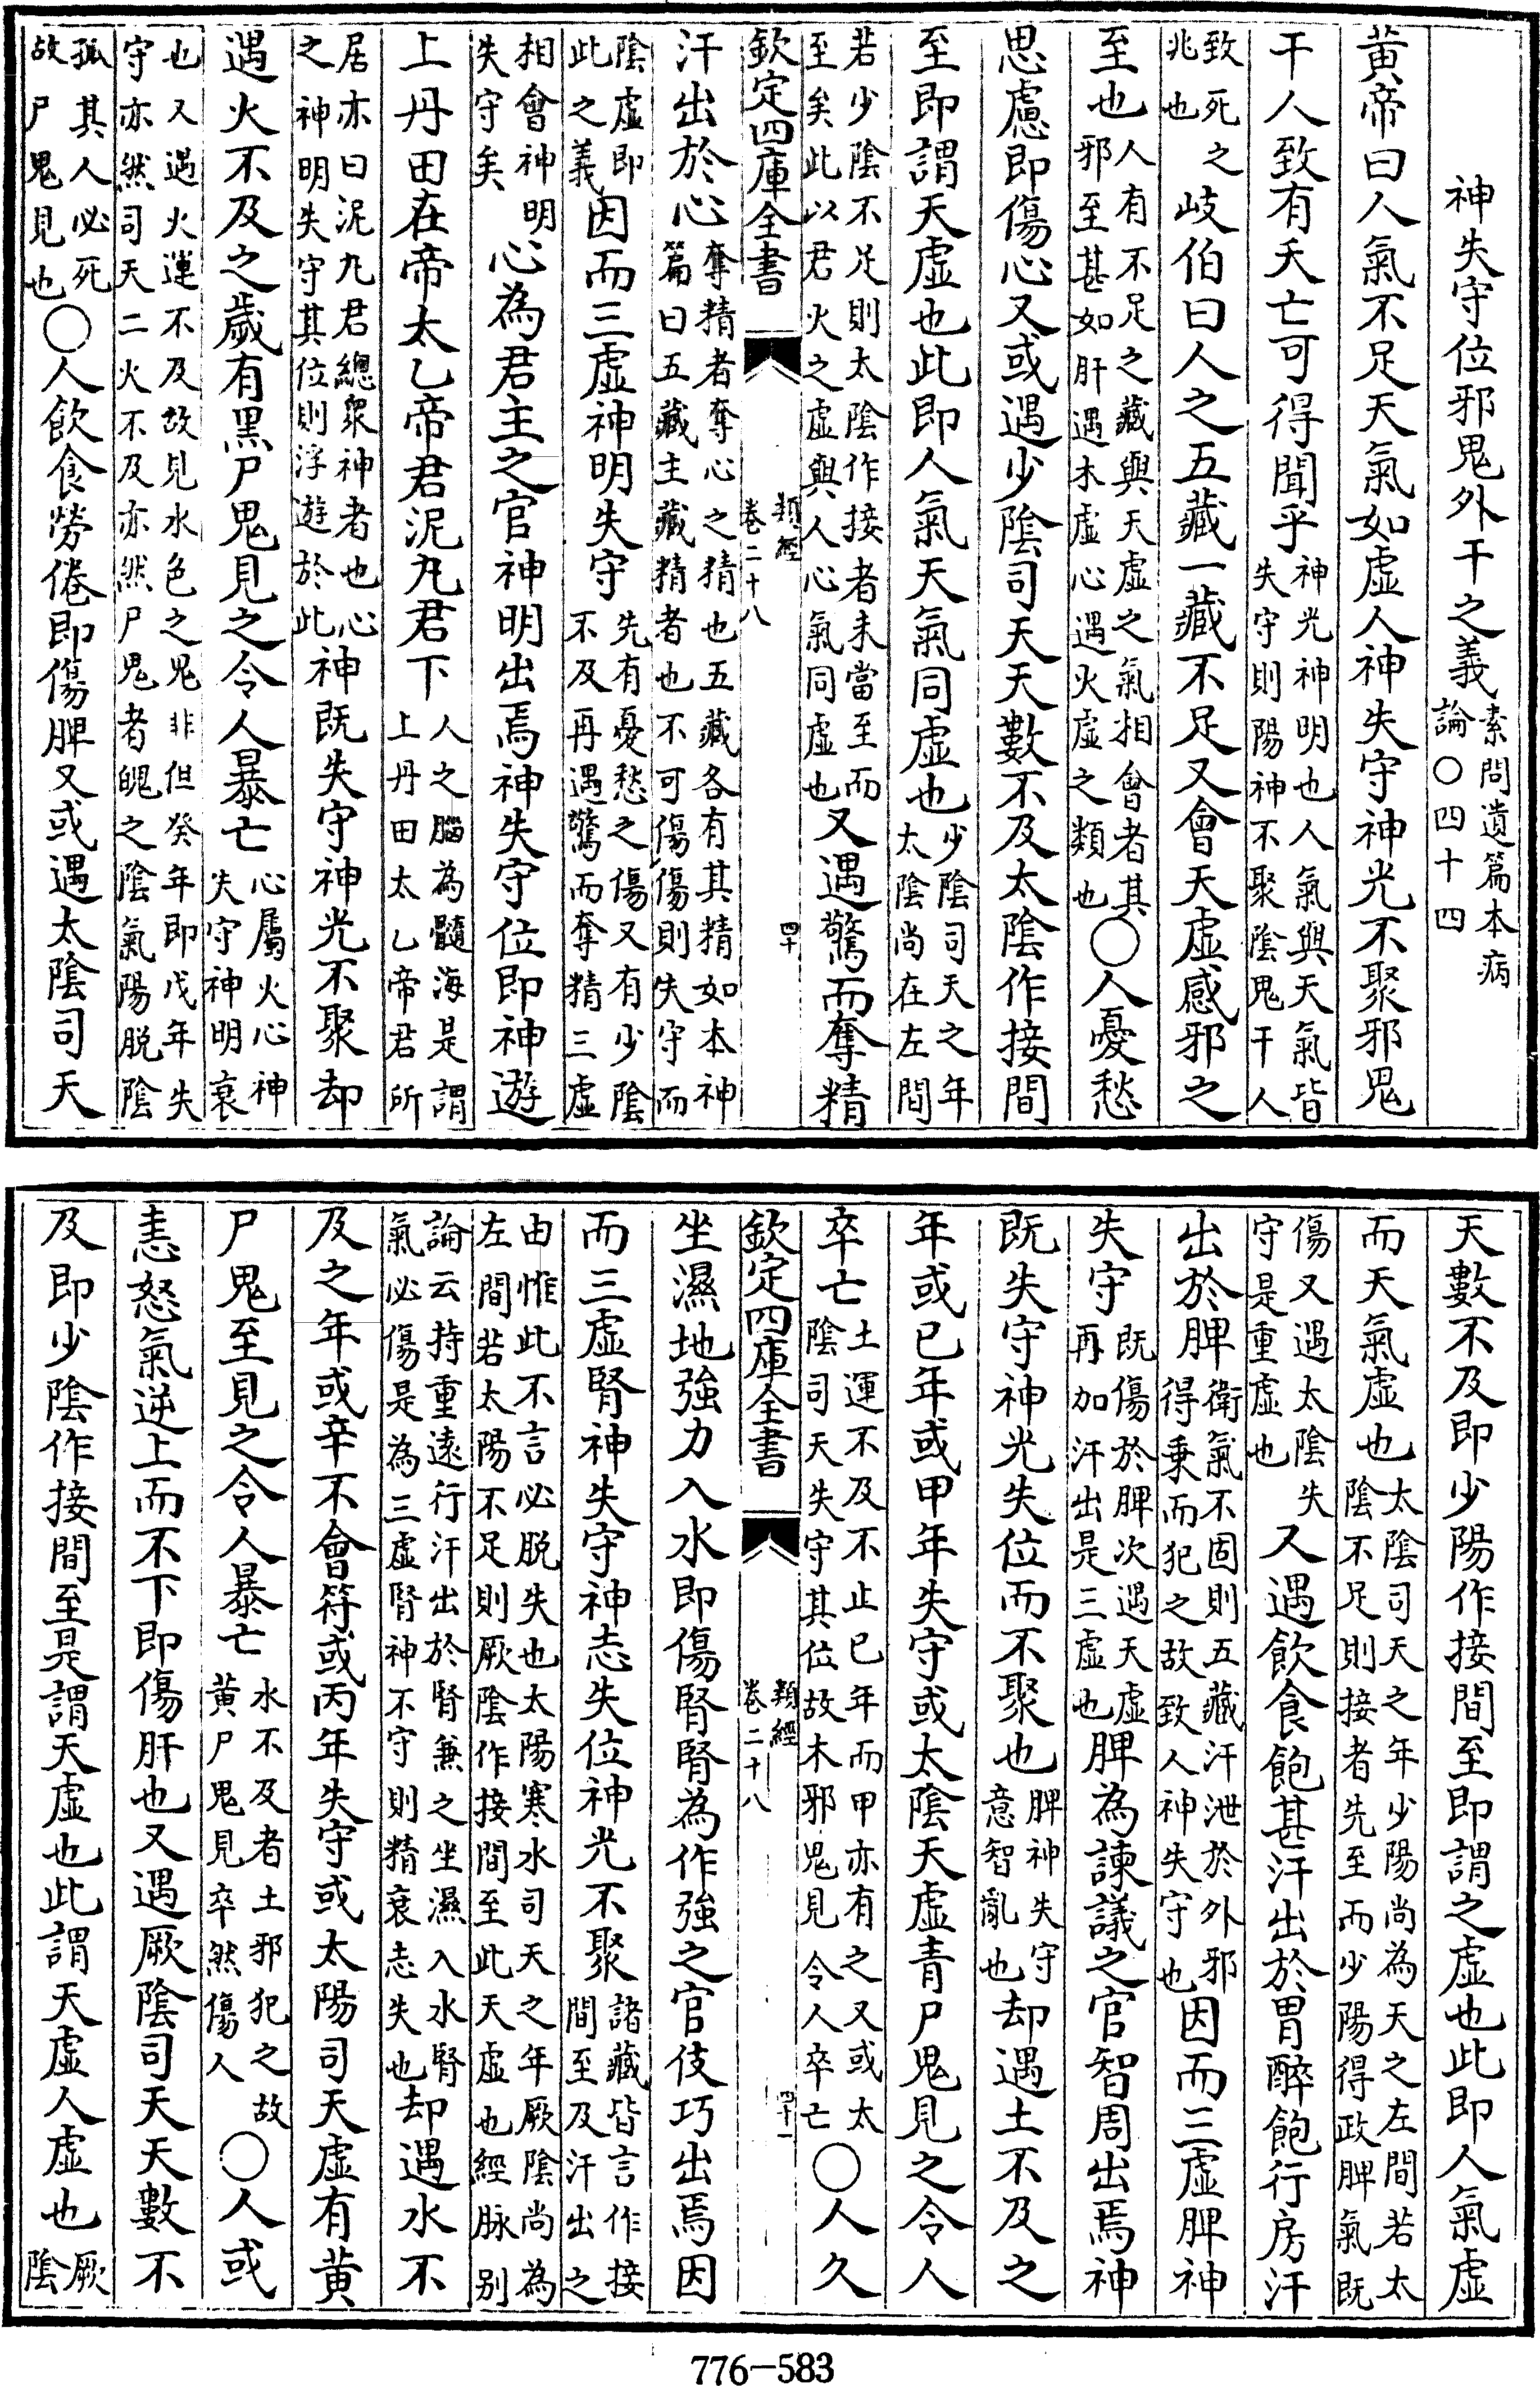 神失守位邪鬼外干之義素問遺篇本病論○四十四
黃帝曰人氣不足天氣如虛人神失守神光不聚邪鬼
干人致有夭亡可得聞乎神光神明也人氣與天氣皆失守則陽神不聚陰鬼干人
致死之兆也岐伯曰人之五藏一藏不足又會天虛感邪之
至也人有不足之藏與天虛之氣相會者其邪至甚如肝遇木虛心遇火虛之類也○人憂愁
思慮即傷心又或遇少陰司天天數不及太陰作接間
至即謂天虛也此即人氣天氣同虛也少陰司天之年太陰尚在左間
若少陰不足則太陰作接者未當至而至矣此以君火之虛與人心氣同虛也又遇驚而奪精
欽定四庫全書 類經 卷二十八 四十
汗出於心奪精者奪心之精也五藏各有其精如本神篇曰五藏主藏精者也不可傷傷則失守而
陰虛即此之義因而三虛神明失守先有憂愁之傷又有少陰不及再遇驚而奪精三虛
相會神明失守矣心為君主之官神明出焉神失守位即神遊
上丹田在帝太乙帝君泥丸君下人之腦為髓海是謂上丹田太乙帝君所
居亦曰泥丸君總衆神者也心之神明失守其位則浮遊於此神既失守神光不聚却
遇火不及之歲有黑尸鬼見之令人暴亡心屬火心神失守神明衰
也又遇火運不及故見水色之鬼非但癸年即戊年失守亦然司天二火不及亦然尸鬼者魄之陰氣陽脱陰
孤其人必死故尸鬼見也○人飲食勞倦即傷脾又或遇太陰司天
天數不及即少陽作接間至即謂之虛也此即人氣虛
而天氣虛也太陰司天之年少陽尚為天之左間若太陰不足則接者先至而少陽得政脾氣既
傷又遇太陰失守是重虛也又遇飲食飽甚汗出於胃醉飽行房汗
出於脾衛氣不固則五藏汗泄於外邪得乗而犯之故致人神失守也因而三虛脾神
失守既傷於脾次遇天虛再加汗出是三虛也脾為諫議之官智周出焉神
既失守神光失位而不聚也脾神失守意智亂也却遇土不及之
年或已年或甲年失守或太陰天虛青尸鬼見之令人
卒亡土運不及不止已年而甲亦有之又或太陰司天失守其位故木邪鬼見令人卒亡○人久
欽定四庫全書 類經 卷二十八 四十一
坐濕地強力入水即傷腎腎為作強之官伎巧出焉因
而三虛腎神失守神志失位神光不聚諸藏皆言作接間至及汗出之
由惟此不言必脱失也太陽寒水司天之年厥陰尚為左間若太陽不足則厥陰作接間至此天虛也經脉别
論云持重遠行汗出於腎兼之坐濕入水腎氣必傷是為三虛腎神不守則精衰志失也却遇水不
及之年或辛不會符或丙年失守或太陽司天虛有黃
尸鬼至見之令人暴亡水不及者土邪犯之故黃尸鬼見卒然傷人○人或
恚怒氣逆上而不下即傷肝也又遇厥陰司天天數不
及即少陰作接間至是謂天虛也此謂天虛人虛也厥陰
776-583